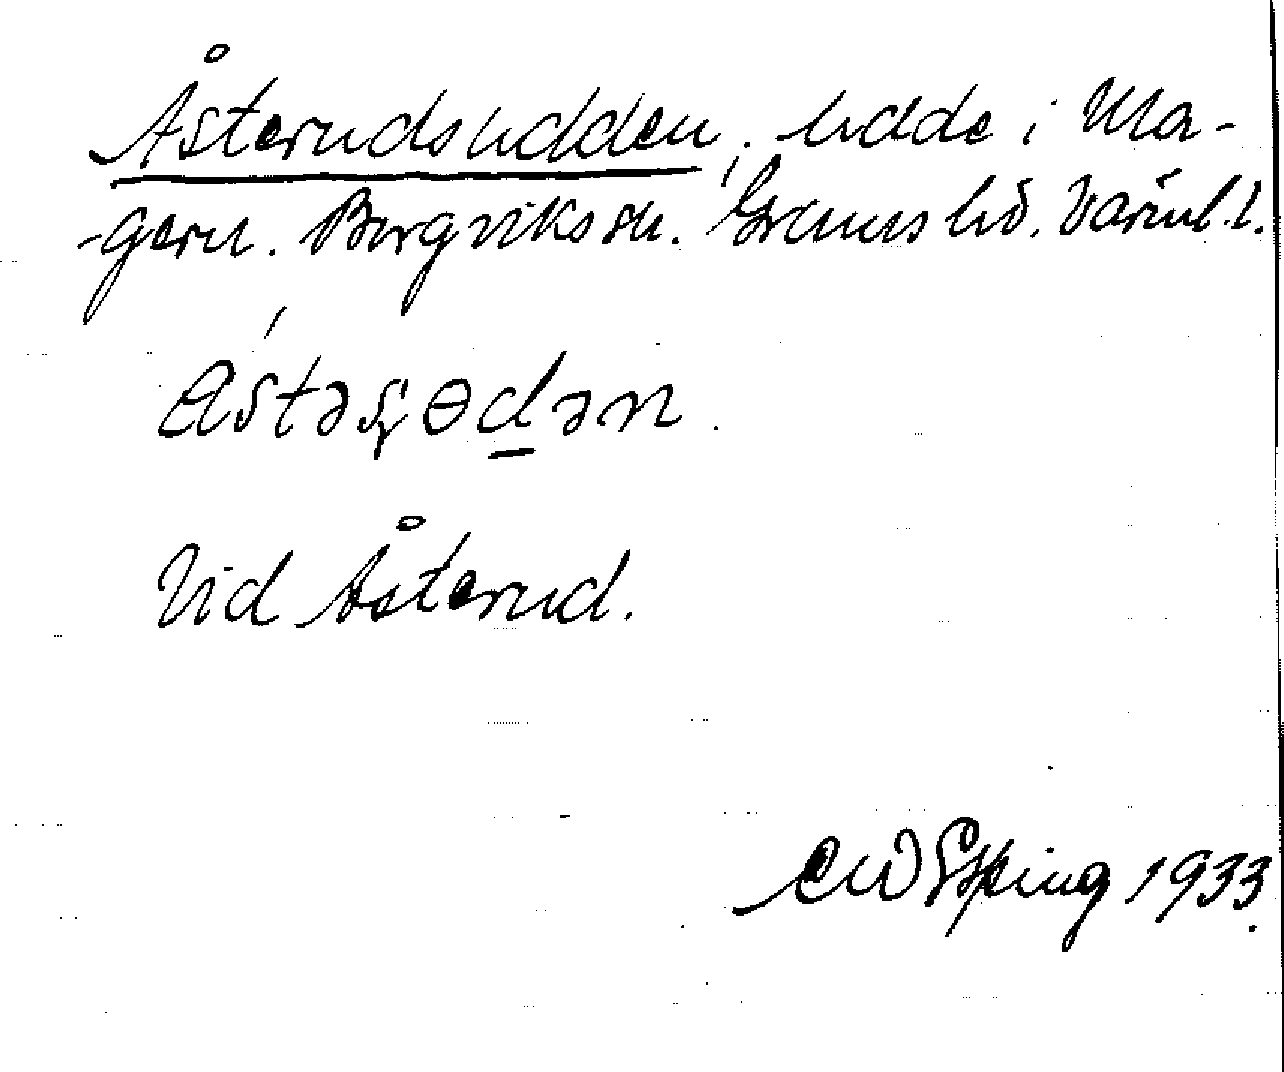 Åsterudsudden, udde i Ma-
gern. Borgviks sn. Grums hd. Värml. l.
Vid Åsterud.
CW Epping 1933.